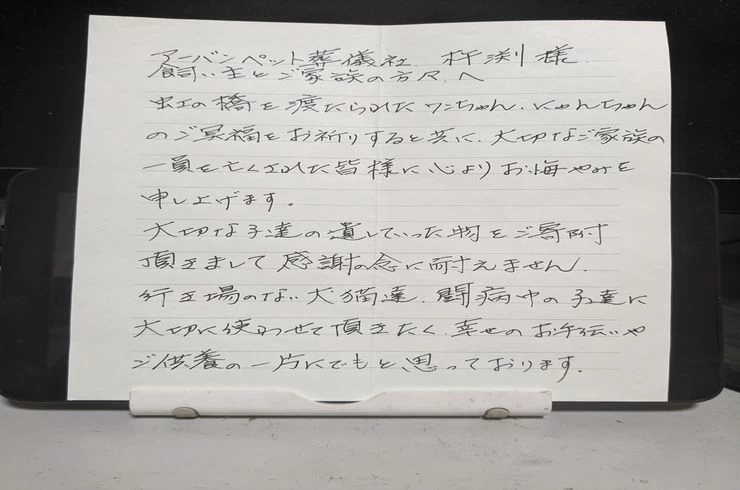 アーバンペット葬儀社 杵渕様
飼い主とご家族の方々へ
虹の橋を渡たられたワンちゃん、にゃんちゃん
のご冥福をお祈りすると共に、大切なご家族の
一員を亡くされた皆様に心よりお悔やみを
申し上げます。
大切な子達の遺していった物をご寄附
頂きまして感謝の念に耐えません。
行き場のない犬猫達、闘病中の子達に
大切に使わせて頂きたく、幸せのお手伝いや
ご供養の一片にでもと思っております。